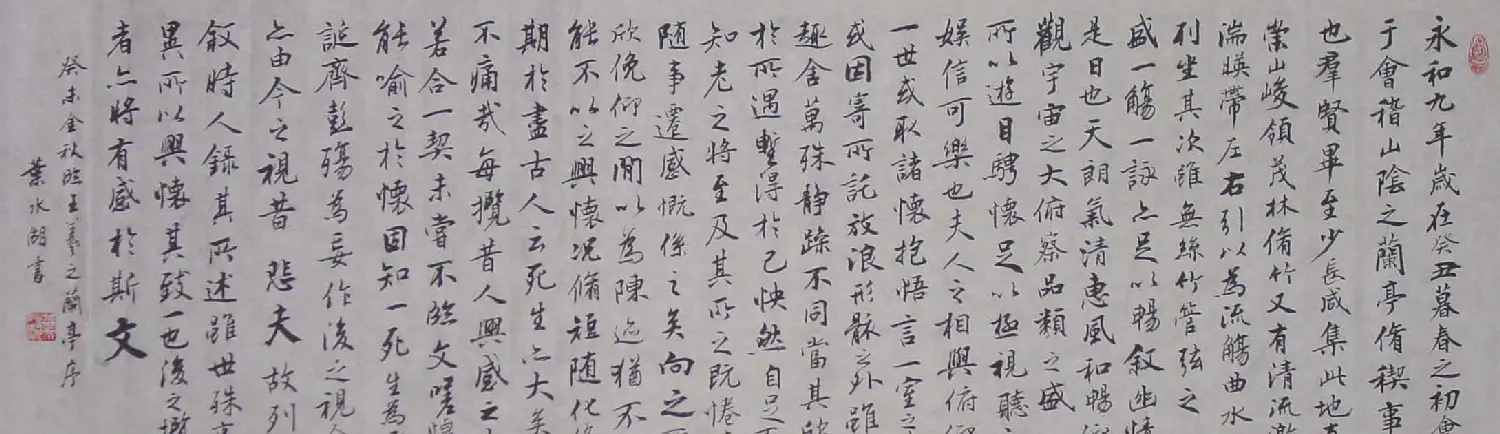 永和九年歲在癸丑暮春之初會
于會稽山陰之蘭亭脩稧事
也羣賢畢至少長咸集此地
崇山峻領茂林脩竹又有清流激
湍暎帶左右引以為流觴曲水
列坐其次雖無絲竹管弦之
盛一觴一詠亦足以暢敘幽情
是日也天朗氣清惠風和暢仰
觀宇宙之大俯察品類之盛
所以遊目騁懷足以極視聽
娛信可樂也夫人之相與俯仰
一世或取諸懷抱悟言一室之
或因寄所託放浪形骸之外雖
趣舍萬殊靜躁不同當其欣
於所遇暫得於己快然自足
知老之將至及其所之既惓
隨事遷感慨係之矣向之
欣俛仰之閒以為陳迹猶不
能不以之興懷況脩短隨化終
期於盡古人云死生亦大矣
不痛哉每攬昔人興感之
若合一契未嘗不臨文嗟悼
能喻之於懷固知一死生為
誕齊彭殤為妄作後之視今
亦由今之視昔悲夫故列
敘時人錄其所述雖世殊事
異所以興懷其致一也後之攬
者亦將有感於斯文
癸未金秋臨王羲之蘭亭序
葉水湖書